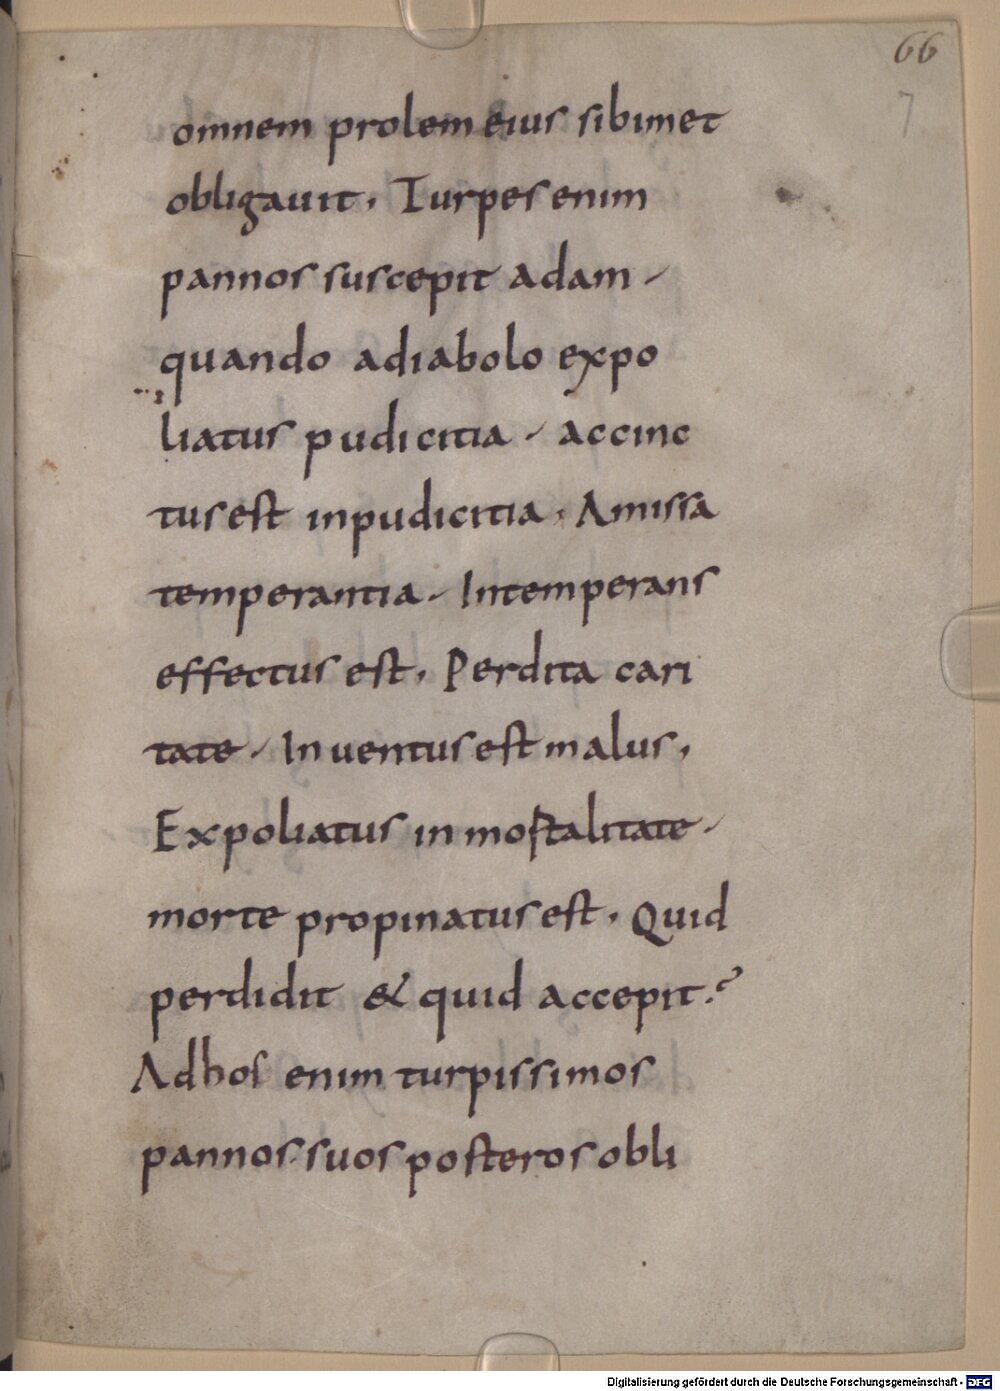 66
7
omnem prolem eius sibimet
obligauit. Turpes enim
pannos suscepit adam -
quando adiabolo expo
liatus pudicitia - accinc
tus est inpudicitia. Amissa
temperantia - Intemperans
effectus est. Perdita cari
tate - Inuentus est malus.
Expoliatus in mostalitate -
morte propinatus est. Quid
perdidit & quid accepit?
Ad hos enim turpissimos
pannos suos posteros obli
Digitalisierung gefördert durch die Deutsche Forschungsgemeinschaft - DFG